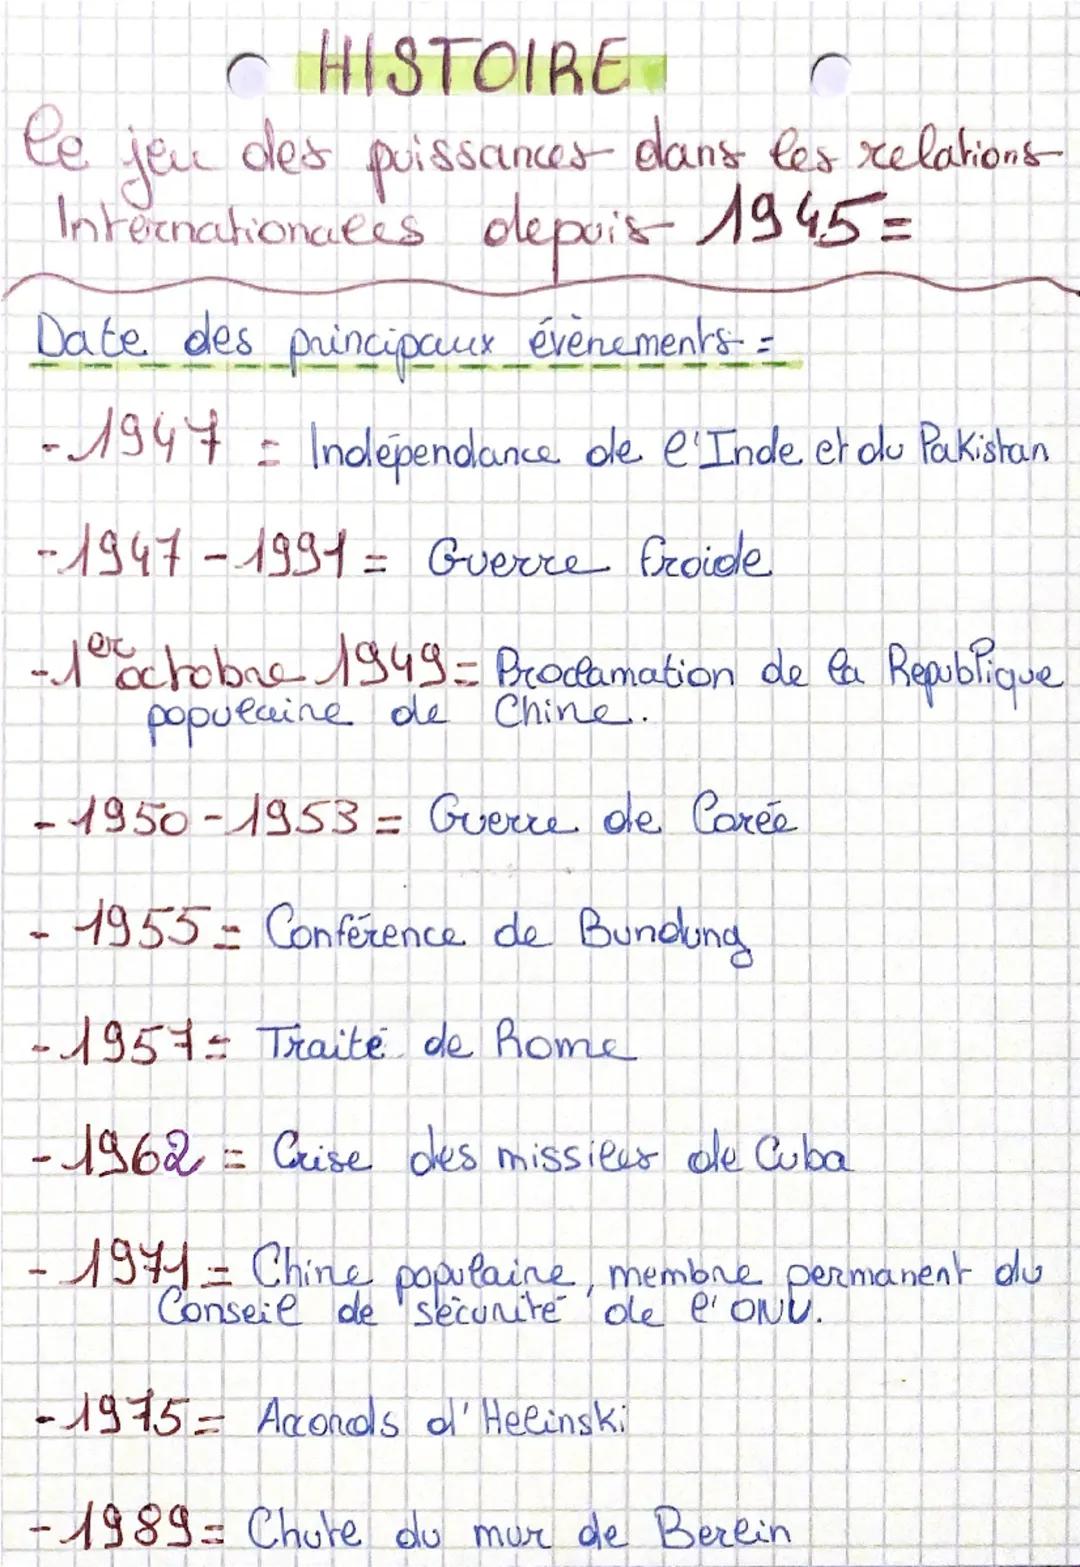 HISTOIRE
Le jeu des puissances dans les relations
Internationales depuis 1945=
Date des principaux évènements =
- 1947 = Indépendance de l'Inde et du Pakistan
- 1947 - 1991 = Guerre froide
- 1er octobre 1949 = Proclamation de la Republique
populaire de Chine.
- 1950 - 1953 = Guerre de Corée
- 1955 = Conférence de Bundung
- 1957 = Traité de Rome
- 1962 = Crise des missiles de Cuba
- 1971 = Chine populaire, membre permanent du
Conseil de sécurité de l'ONU.
- 1975 = Accords d'Helinski
- 1989 = Chute du mur de Berlin